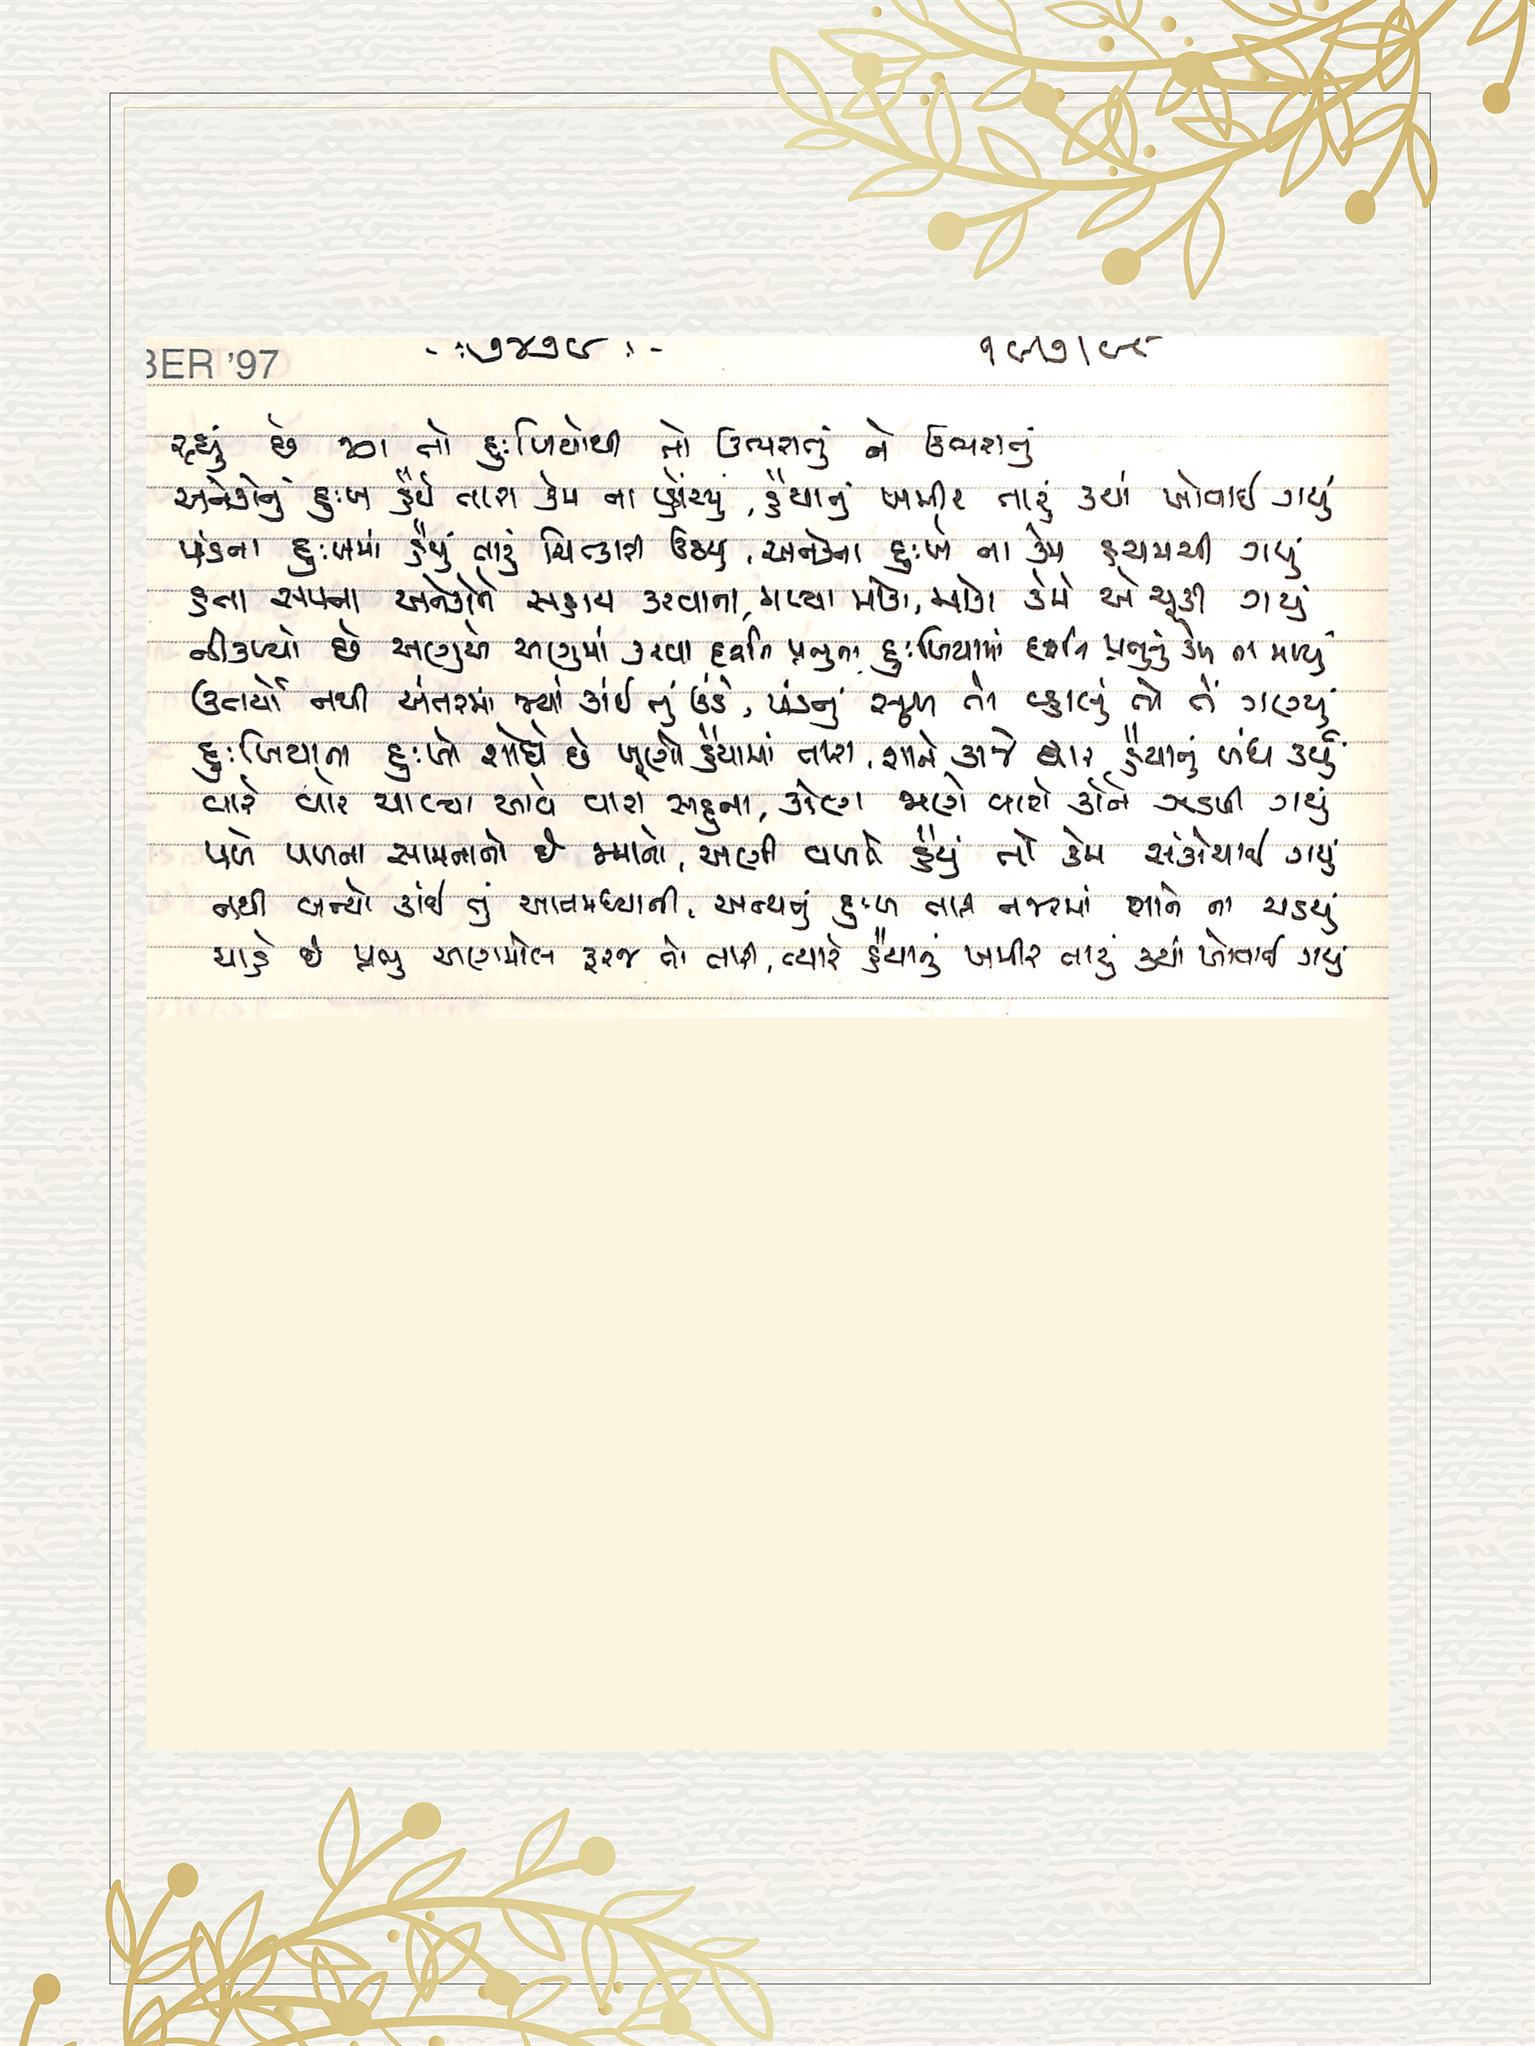 BER '97
-: ૭૪૭૯ :-
૧૯।૭।૯૮
રહ્યું છે જગ તો દુઃખિયોથી તો ઉભરાતું ને ઉભરાતું
અનેકોનું દુઃખ હૈયે તારા કેમ ના કોર્યું, હૈયાનું ખમીર તારું ક્યાં ખોવાઈ ગયું
પંડના દુઃખમાં હૈયું તારું ચિત્કારી ઉઠયું, અનેકના દુઃખે ના કેમ હચમચી ગયું
હતા સપના અનેકોને સહાય કરવાના, મળ્યા મોકા, મોકા કેમે એ ચૂકી ગયું
નીકળ્યો છે અણુએ અણુમાં કરવા દર્શન પ્રભુના દુઃખિયામાં દર્શન પ્રભુનું કેમ ના મળ્યું
ઉતર્યો નથી અંતરમાં જ્યાં કાંઈ તું ઉંડે, પંડનું સુખ તેં વ્હાલું તો તેં ગણ્યું
દુઃખિયાના દુઃખો શોધે છે ખૂણો હૈયામાં તારા, શાને આજે દ્વાર હૈયાનું બંધ કર્યું
વારે વારે ચાલ્યા આવે વારા સહુના, કોણ જાણે વારો કોને ઝડપી ગયું
પળે પળના સામનાનો છે જમાનો, અણી વખતે હૈયું તો કેમ સંકોચાઈ ગયું
નથી બન્યો કાંઈ તું આતમધ્યાની, અન્યનું દુઃખ તારી નજરમાં શાને ના ચડયું
ચાહે છે પ્રભુ અણમોલ ફરજ તો તારી, ત્યારે હૈયાનું ખમીર તારું ક્યાં ખોવાઈ ગયું